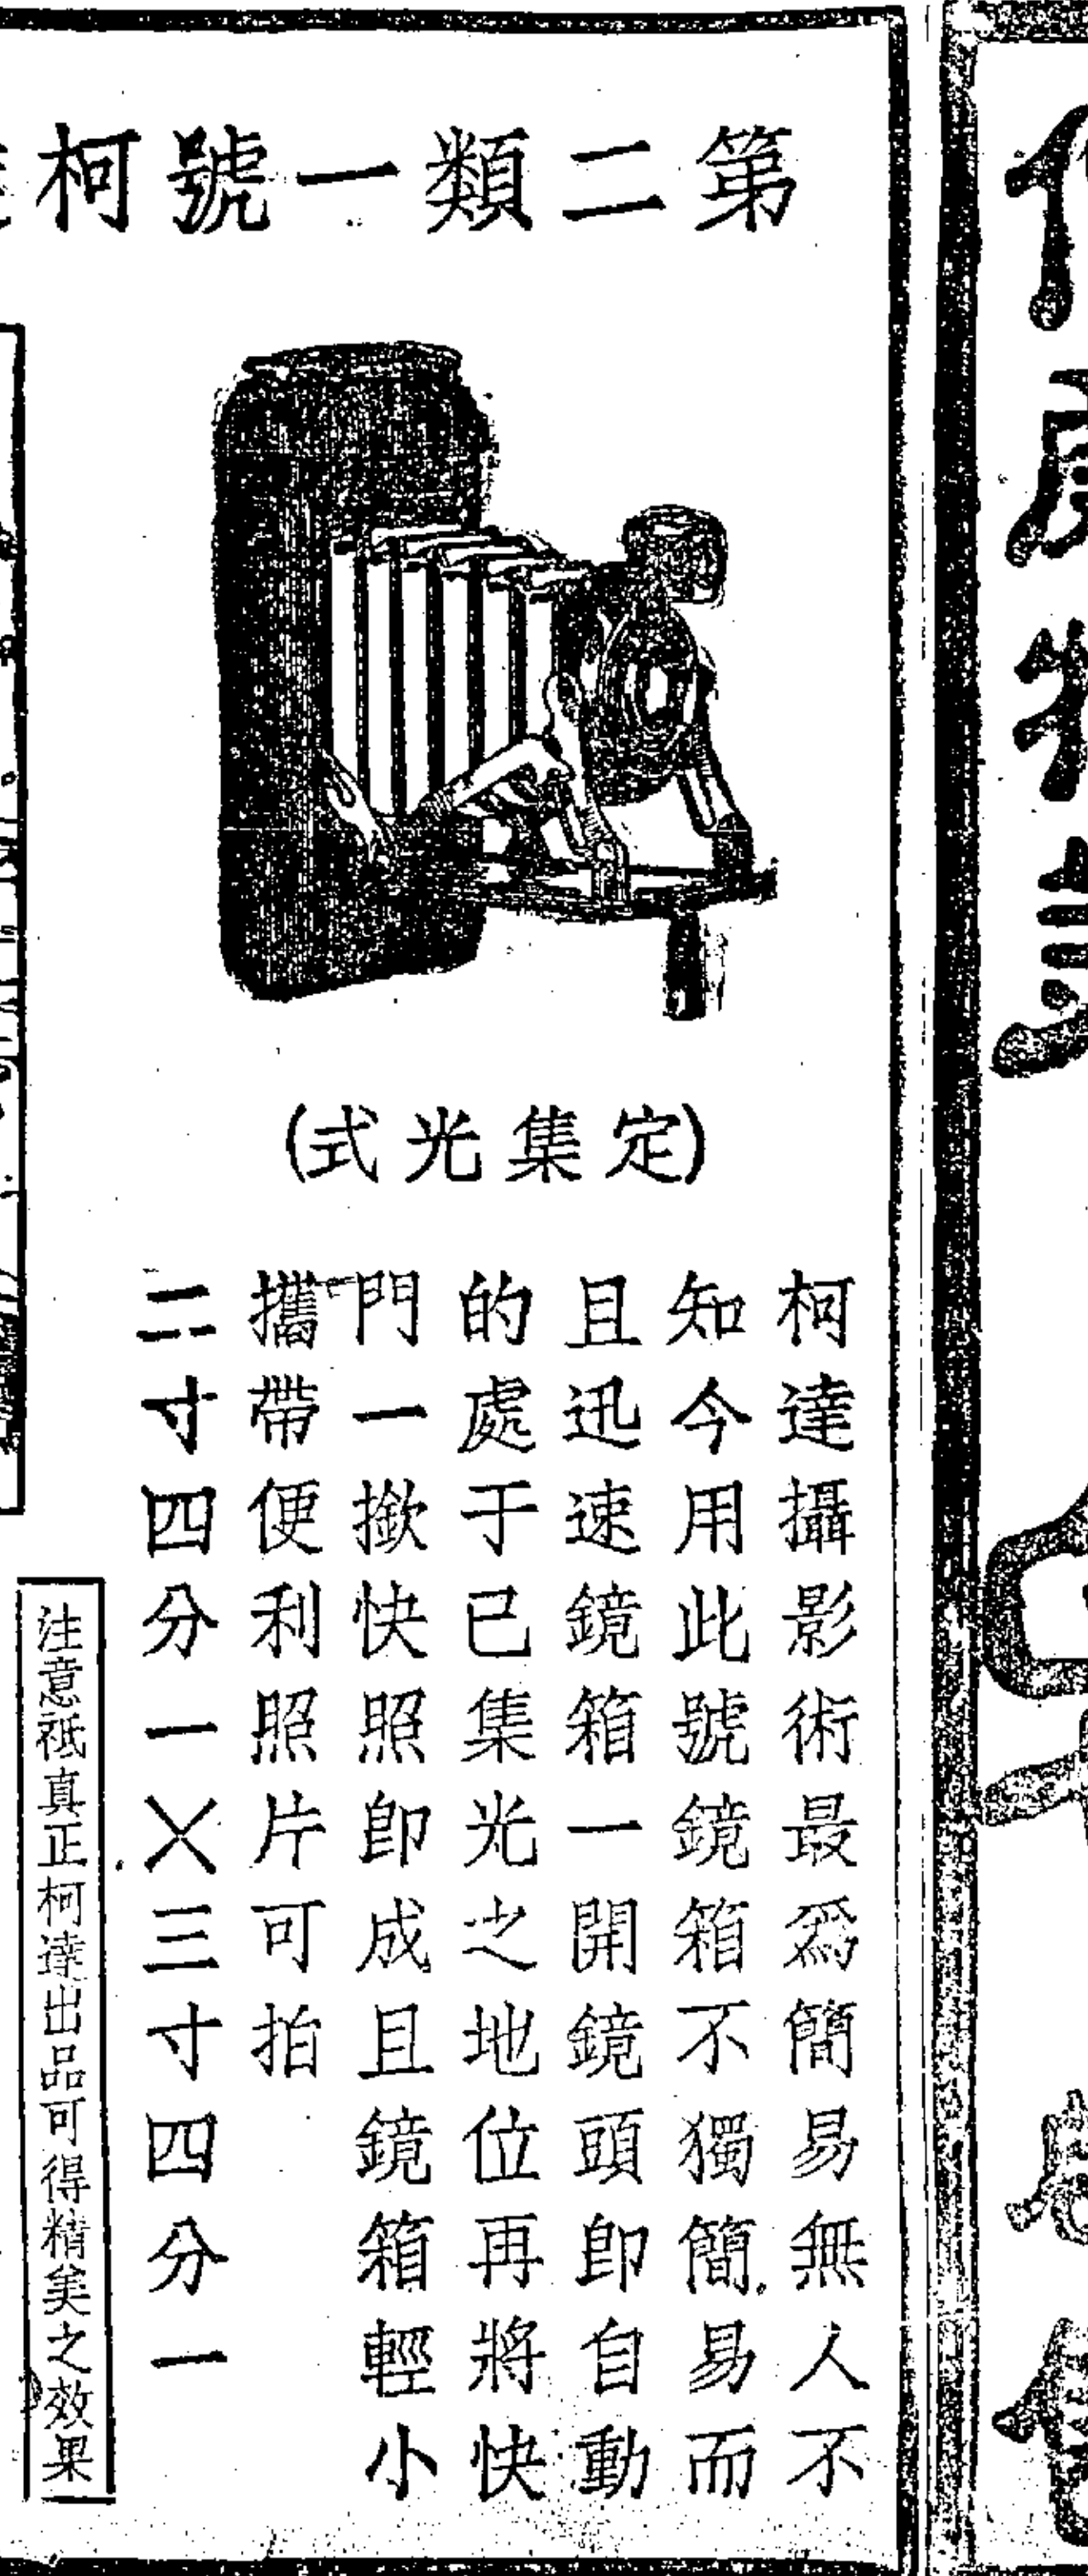 第二類一號柯
(定集光式)
柯達攝影術最爲簡易無人不
知今用此號鏡箱不獨簡易而
且迅速鏡箱一開鏡頭即自動
的處于已集光之地位再將快
門一撳快照即成且鏡箱輕小
攜帶便利照片可拍
二寸四分一×三寸四分一
注意祗真正柯達出品可得精美之效果